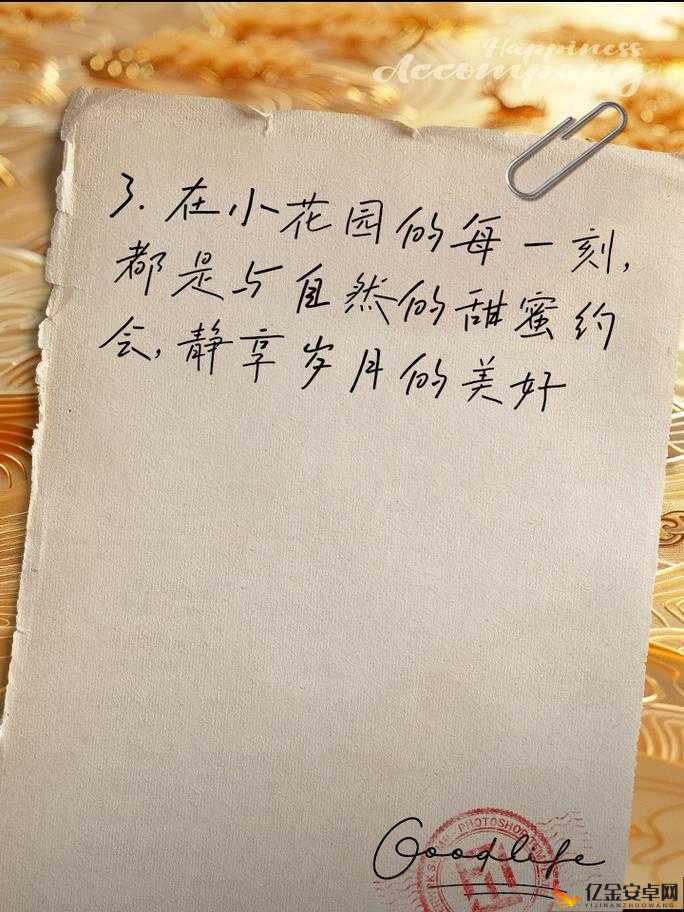 Happiness
Accompany
3. 在小花园的每一刻,
都是与自然的甜蜜约
会,静享岁月的美好
PHOTOSHOP
Goodlife
亿金安卓网
YIJINANZHUOWANG